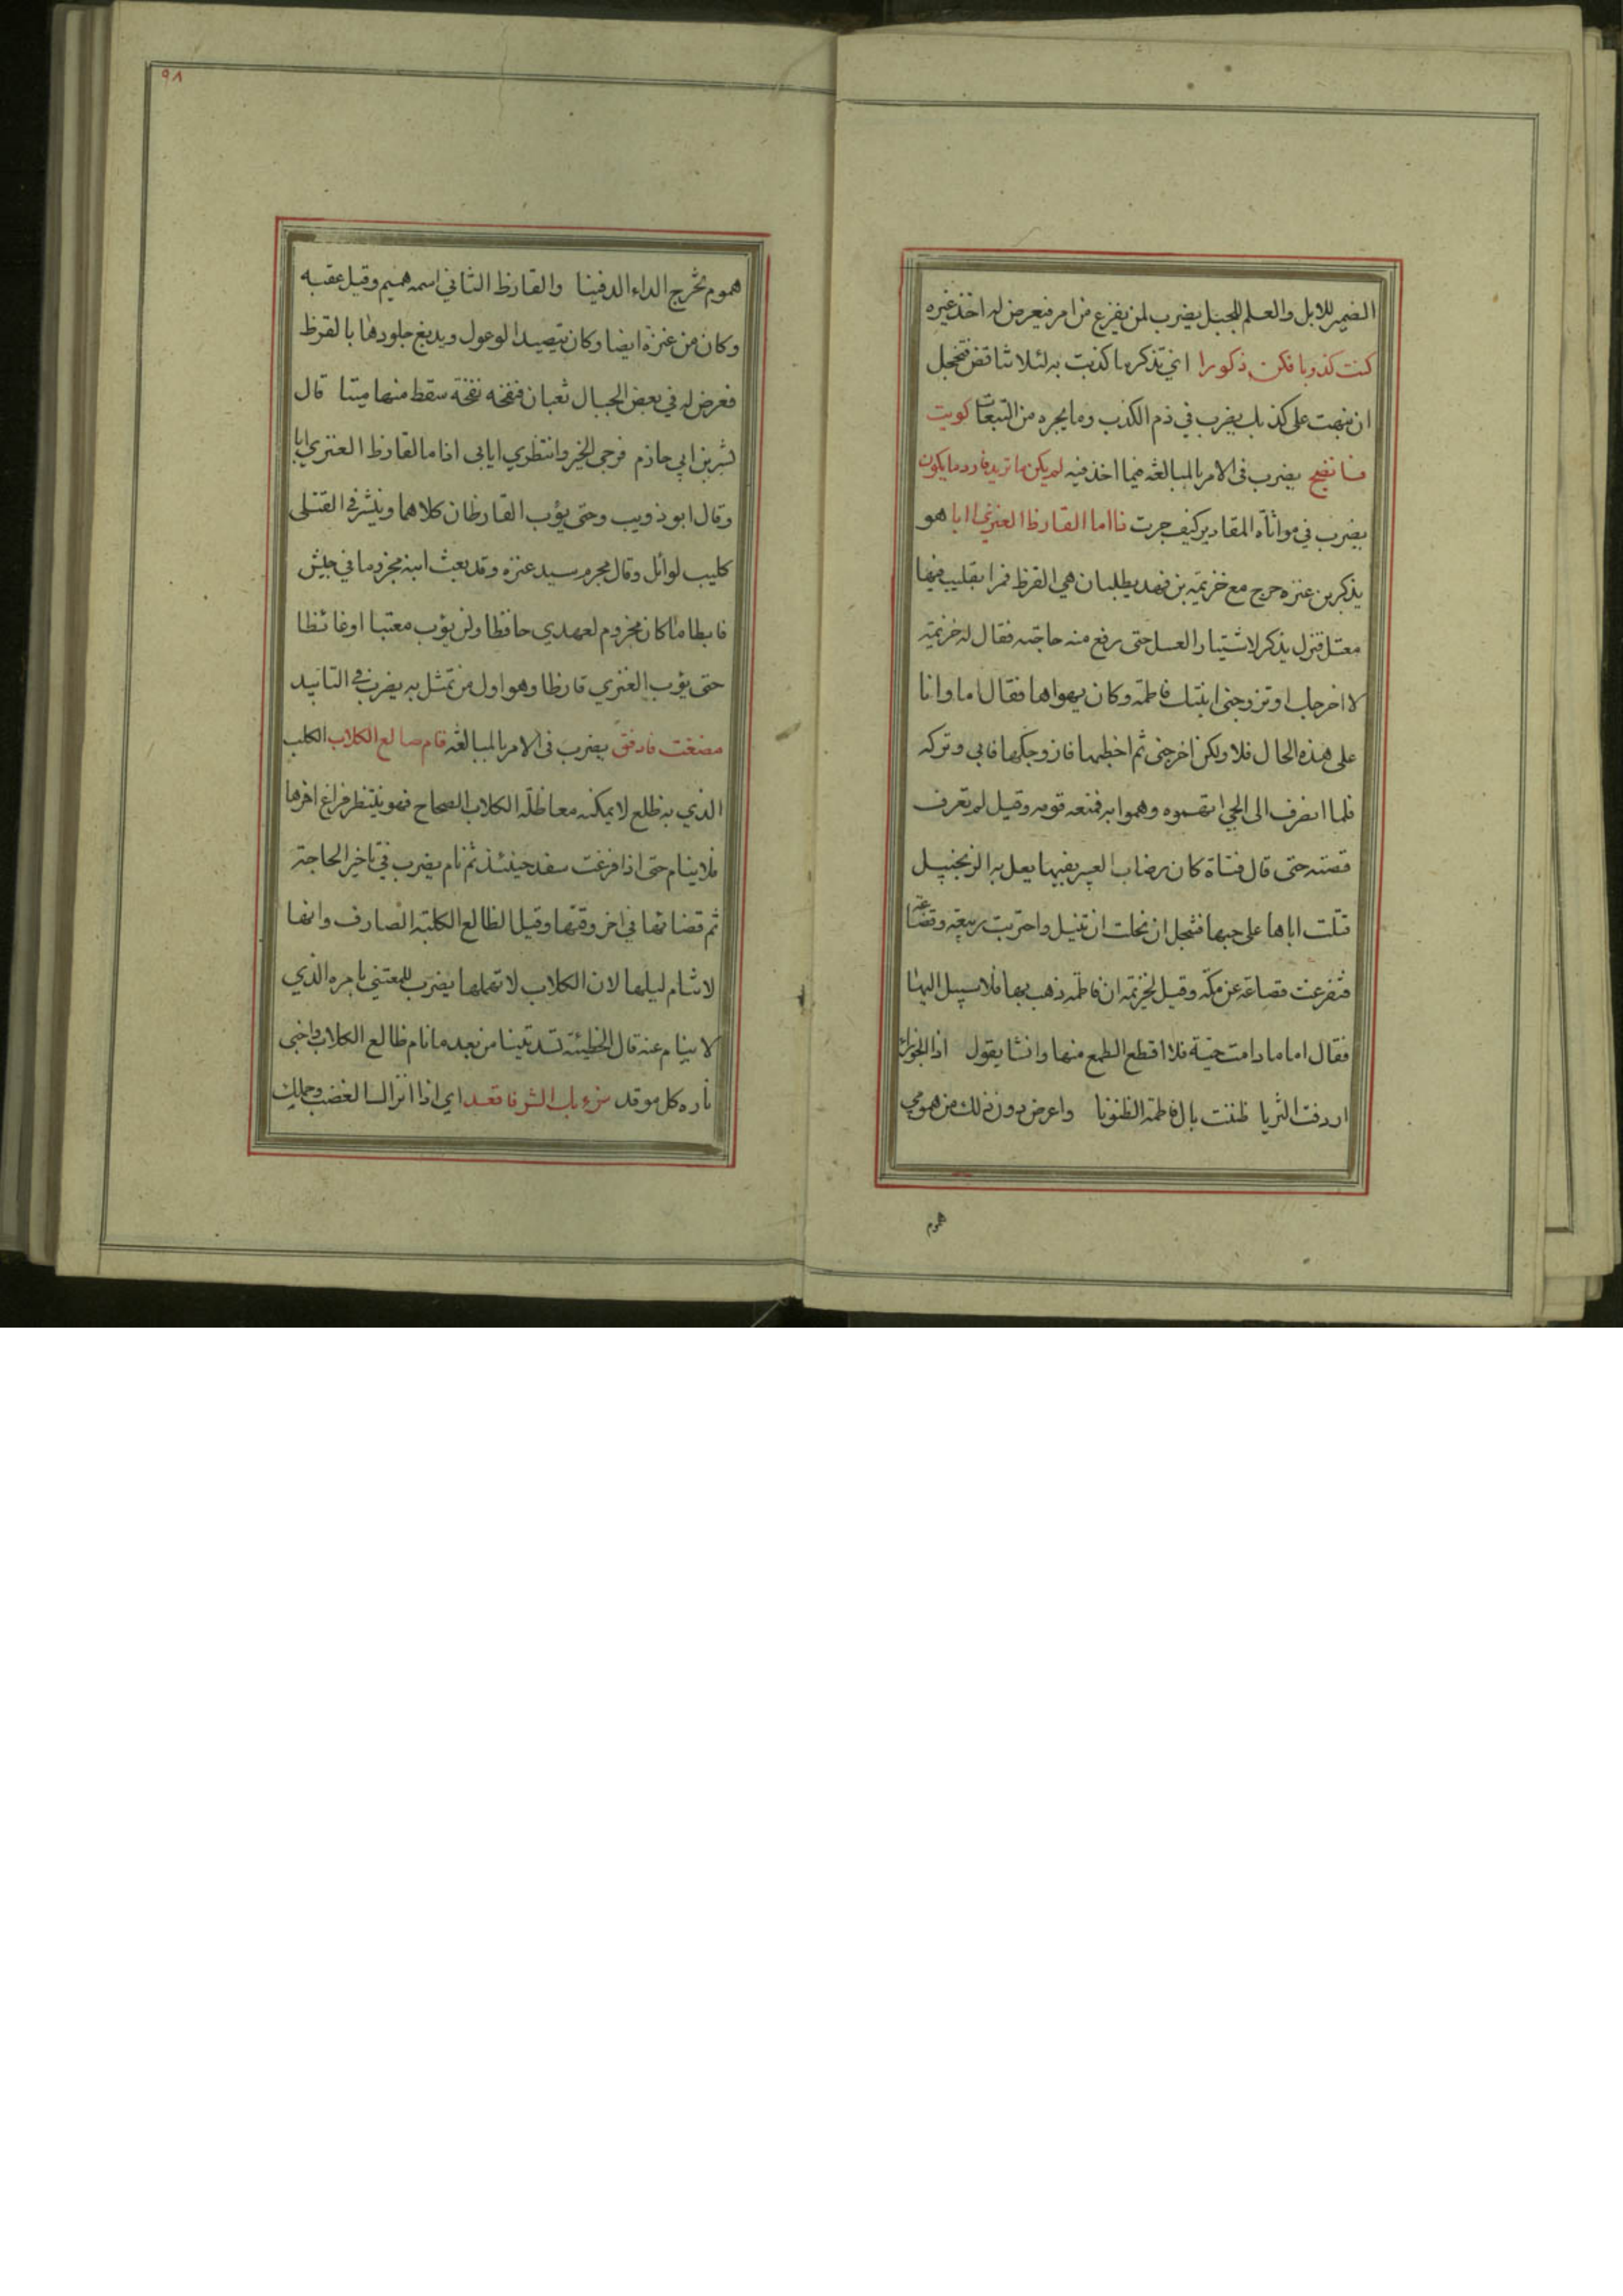 الضمير للابل والعلم للجبل يضرب لمن يفزع من امر فيعرض له اخذ غيره
كنت كذوبا فكن ذكورا اي تذكر ما كذبت به لئلا تناقض فتخجل
ان نبهت على كذبك يضرب في ذم الكذب وما يجره من التبعات كويت
فانضج يضرب في الامر بالمبالغة فيما اخذ فيه لم يكن ما تريد فارد ما يكون
يضرب في مواتاة المقادير كيف جرت ما القارظ العنزي ايابا هو
يذكر بن عنزه خرج مع خزيمة بن نهد يطلبان القرظ فمرا بقليب فيها
معتل فنزل يذكر لاشتيار العسل حتى رفع منه حاجته فقال له خزيمة
لا اخرجك او تزوجني ابنتك فاطمة وكان يهواها فقال اما وانا
على هذه الحال فلا ولكن اخرجني ثم اخطبها فازوجكها فابى وتركه
فلما انصرف الى الحي اتهموه وهموا به فمنعه قومه وقيل لم تعرف
قصته حتى قال فتاة كان رضاب العبير بفيها يعل به الزنجبيل
قتلت اباها على حبها فتبخل ان بخلت او تنيل واحتربت ربيعة وقضاعة
فتفرعت قضاعة عن مكة وقيل لخزيمة ان فاطمة ذهب بها فلا سبيل اليها
فقال اما ما دامت حية فلا اقطع الطمع منها وانشا يقول اذا الجوزاء
اردفت الثريا ظننت بال فاطمة الظنونا واعرض دون ذلك من همومي
هموم
٩٨
هموم تخرج الداء الدفينا والقارظ الثاني اسمه هميم وقيل عقبه
وكان من عنزة ايضا وكان يتصيد الوعول ويدبغ جلودها بالقرظ
فعرض له في بعض الجبال ثعبان فنفخه نفخة سقط منها ميتا قال
بشر بن ابي حازم فرجي الخير وانتظري ايابي اذا ما القارظ العنزي ابا
وقال ابو ذويب وحتى يؤب القارظان كلاهما وينشر في القتلى
كليب لوائل وقال مجرم سيد عنزه وقد بعث ابنه مخزوما في جيش
فابطا ما كان مخزوم لعهدي حافظا ولن يؤب معتبا او غائظا
حتى يؤب العنزي قارظا وهو اول من تمثل به يضرب في التابيد
مضغت فادقق يضرب في الامر بالمبالغة قام ضالع الكلاب الكلب
الذي به ظلع لا يمكنه معاظلة الكلاب الصحاح فهو ينتظر فراغ اخرها
فلا ينام حتى اذا فرغت سفد حينئذ ثم نام يضرب في تاخير الحاجة
ثم قضائها في اخر وقتها وقيل الظالع الكلبة الصارف وانها
لا تنام ليلها لان الكلاب لا تمهلها يضرب للمعتني بامره الذي
لا ينام عنه قال الحطيئة تسديتنا من بعد ما نام ظالع الكلاب واخبى
ناره كل موقد نزء بك الشر فاقعد اي اذا انزالك الغضب وحملك